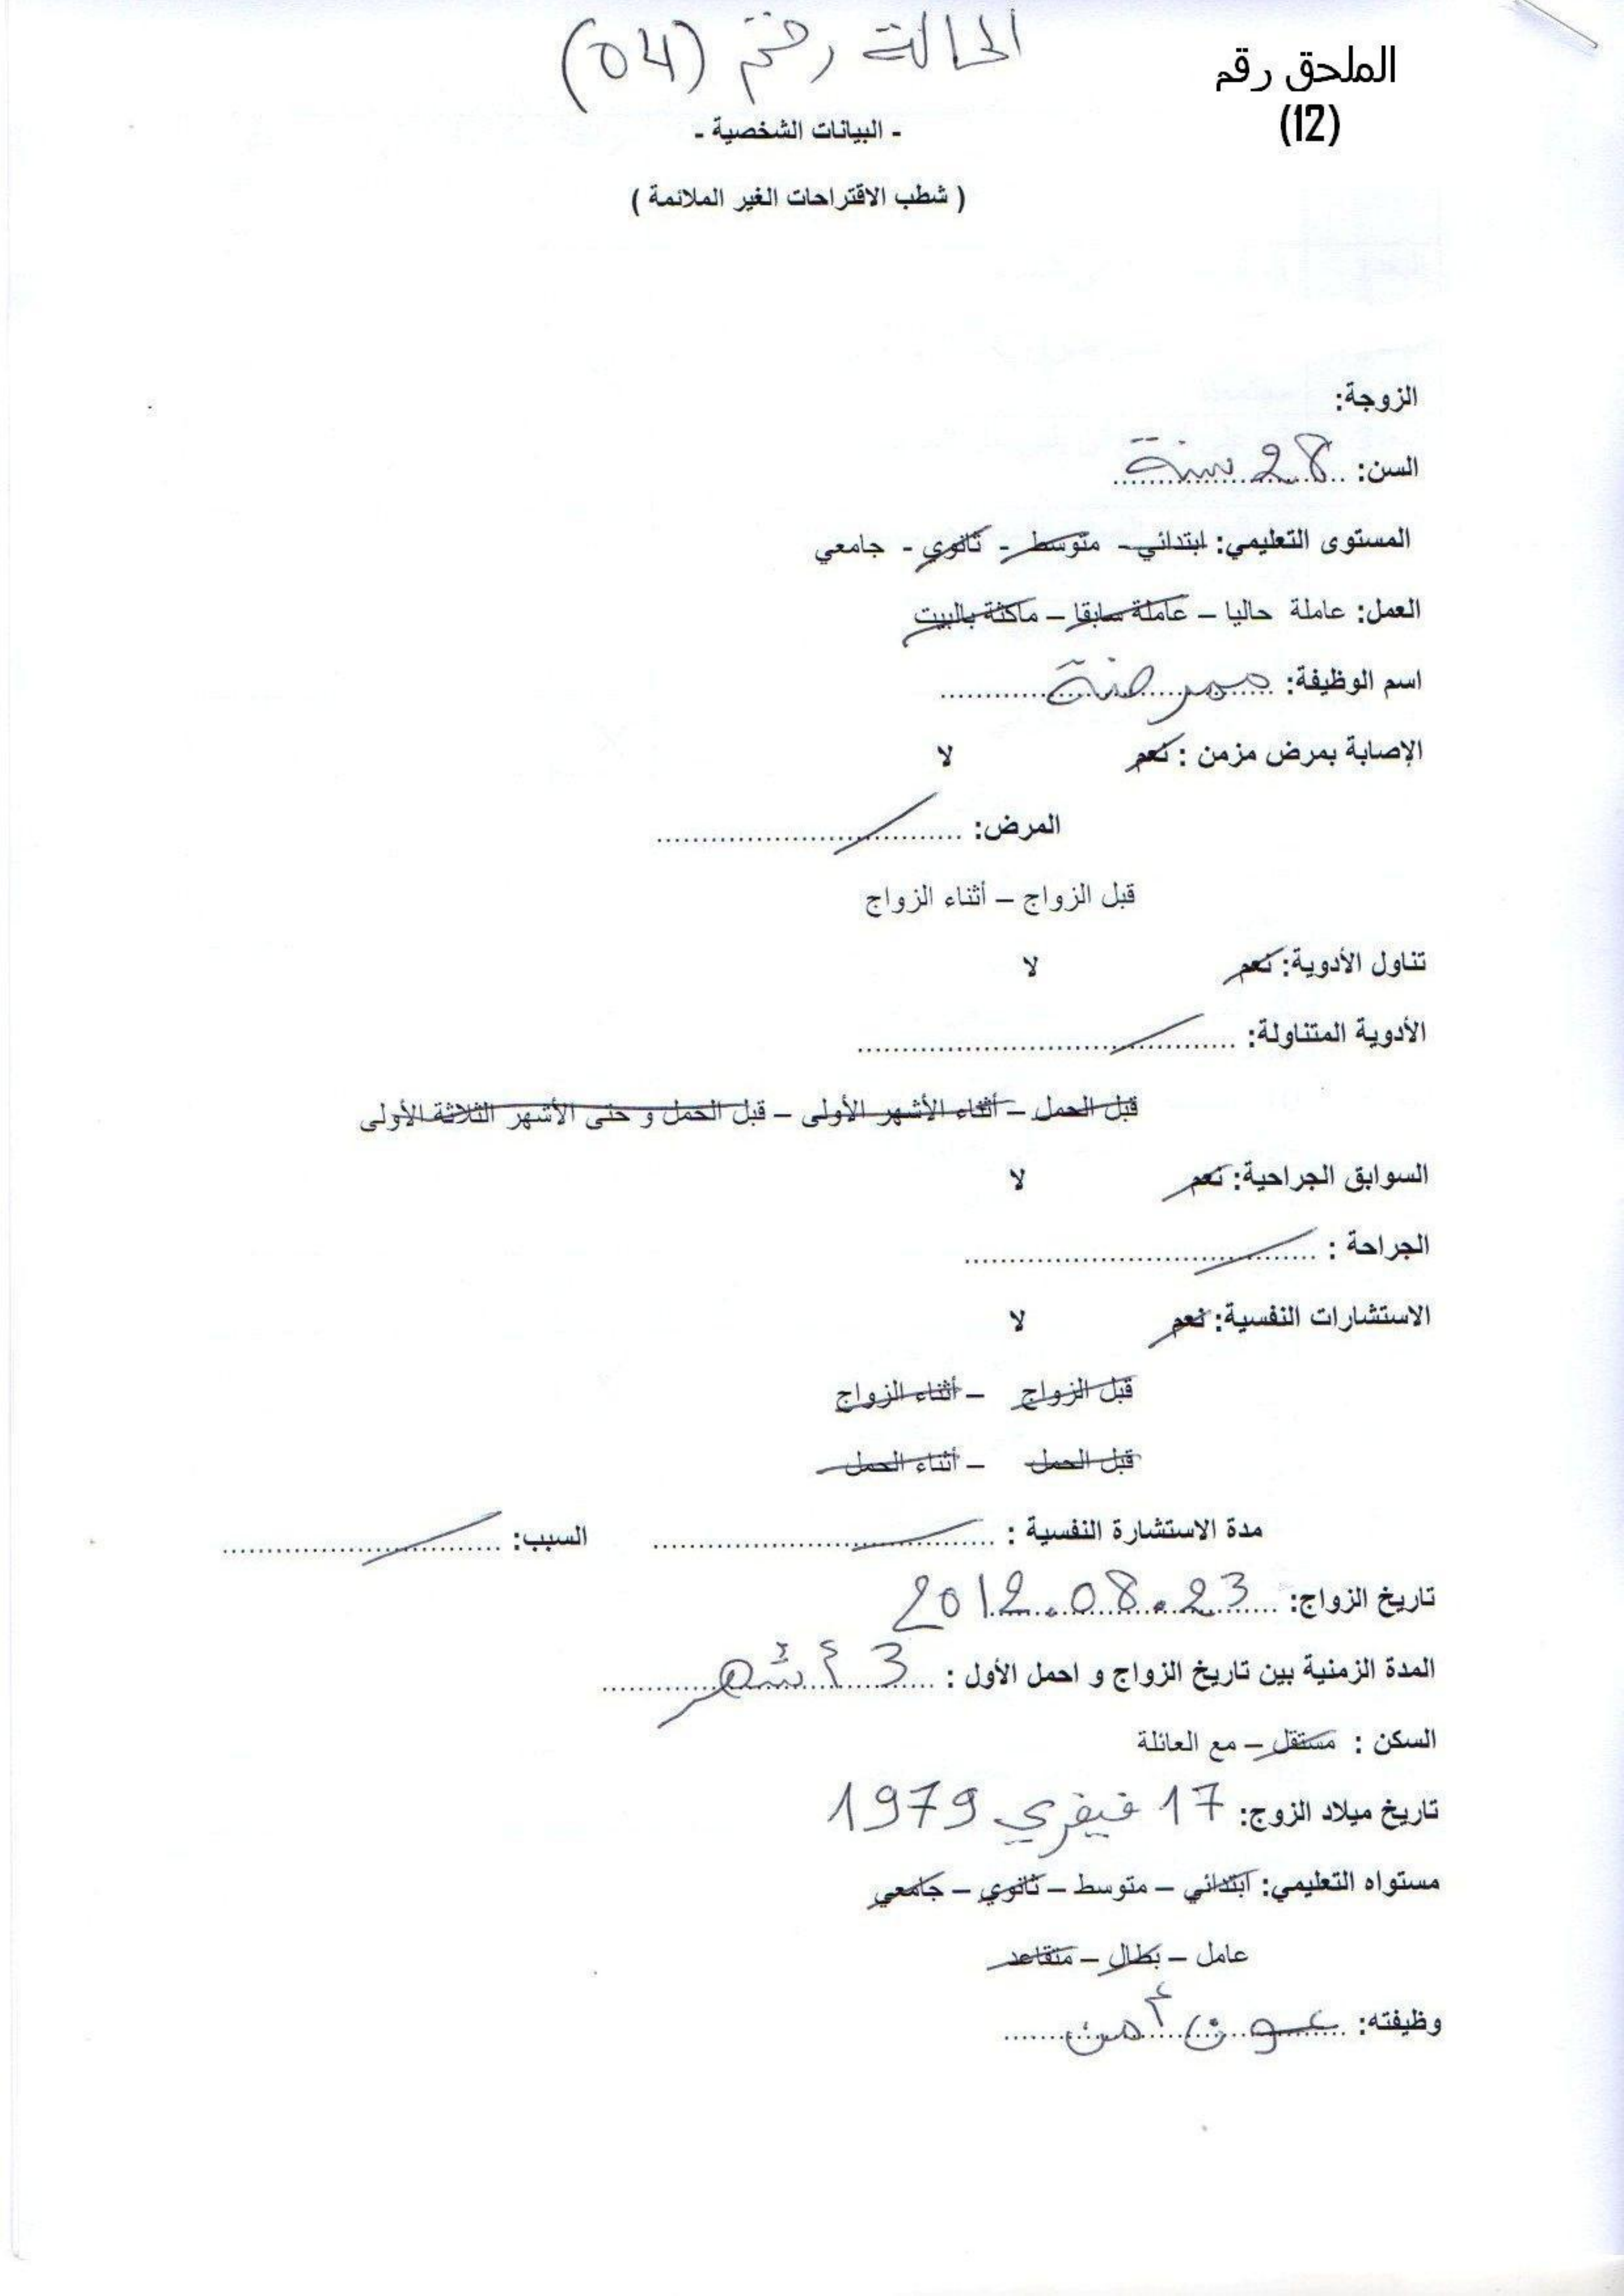 الحالة رقم (04)
الملحق رقم
(12)
- البيانات الشخصية -
( شطب الاقتراحات الغير الملائمة )
الزوجة:
السن: 28 سنة
المستوى التعليمي: ابتدائي - متوسط - ثانوي - جامعي
العمل: عاملة حاليا – عاملة سابقا – ماكثة بالبيت
اسم الوظيفة: ممرضة
الإصابة بمرض مزمن : نعم لا
المرض: ..................................
قبل الزواج – أثناء الزواج
تناول الأدوية: نعم لا
الأدوية المتناولة: ..........................................
قبل الحمل – أثناء الأشهر الأولى – قبل الحمل و حتى الأشهر الثلاثة الأولى
السوابق الجراحية: نعم لا
الجراحة : .......................................
الاستشارات النفسية: نعم لا
قبل الزواج – أثناء الزواج
قبل الحمل – أثناء الحمل
مدة الاستشارة النفسية : ...................................... السبب: ...............................
تاريخ الزواج: 2012.08.23
المدة الزمنية بين تاريخ الزواج و احمل الأول : 3 أشهر
السكن : مستقل – مع العائلة
تاريخ ميلاد الزوج: 17 فيفري 1979
مستواه التعليمي: ابتدائي – متوسط – ثانوي – جامعي
عامل – بطال – متقاعد
وظيفته: عون أمن